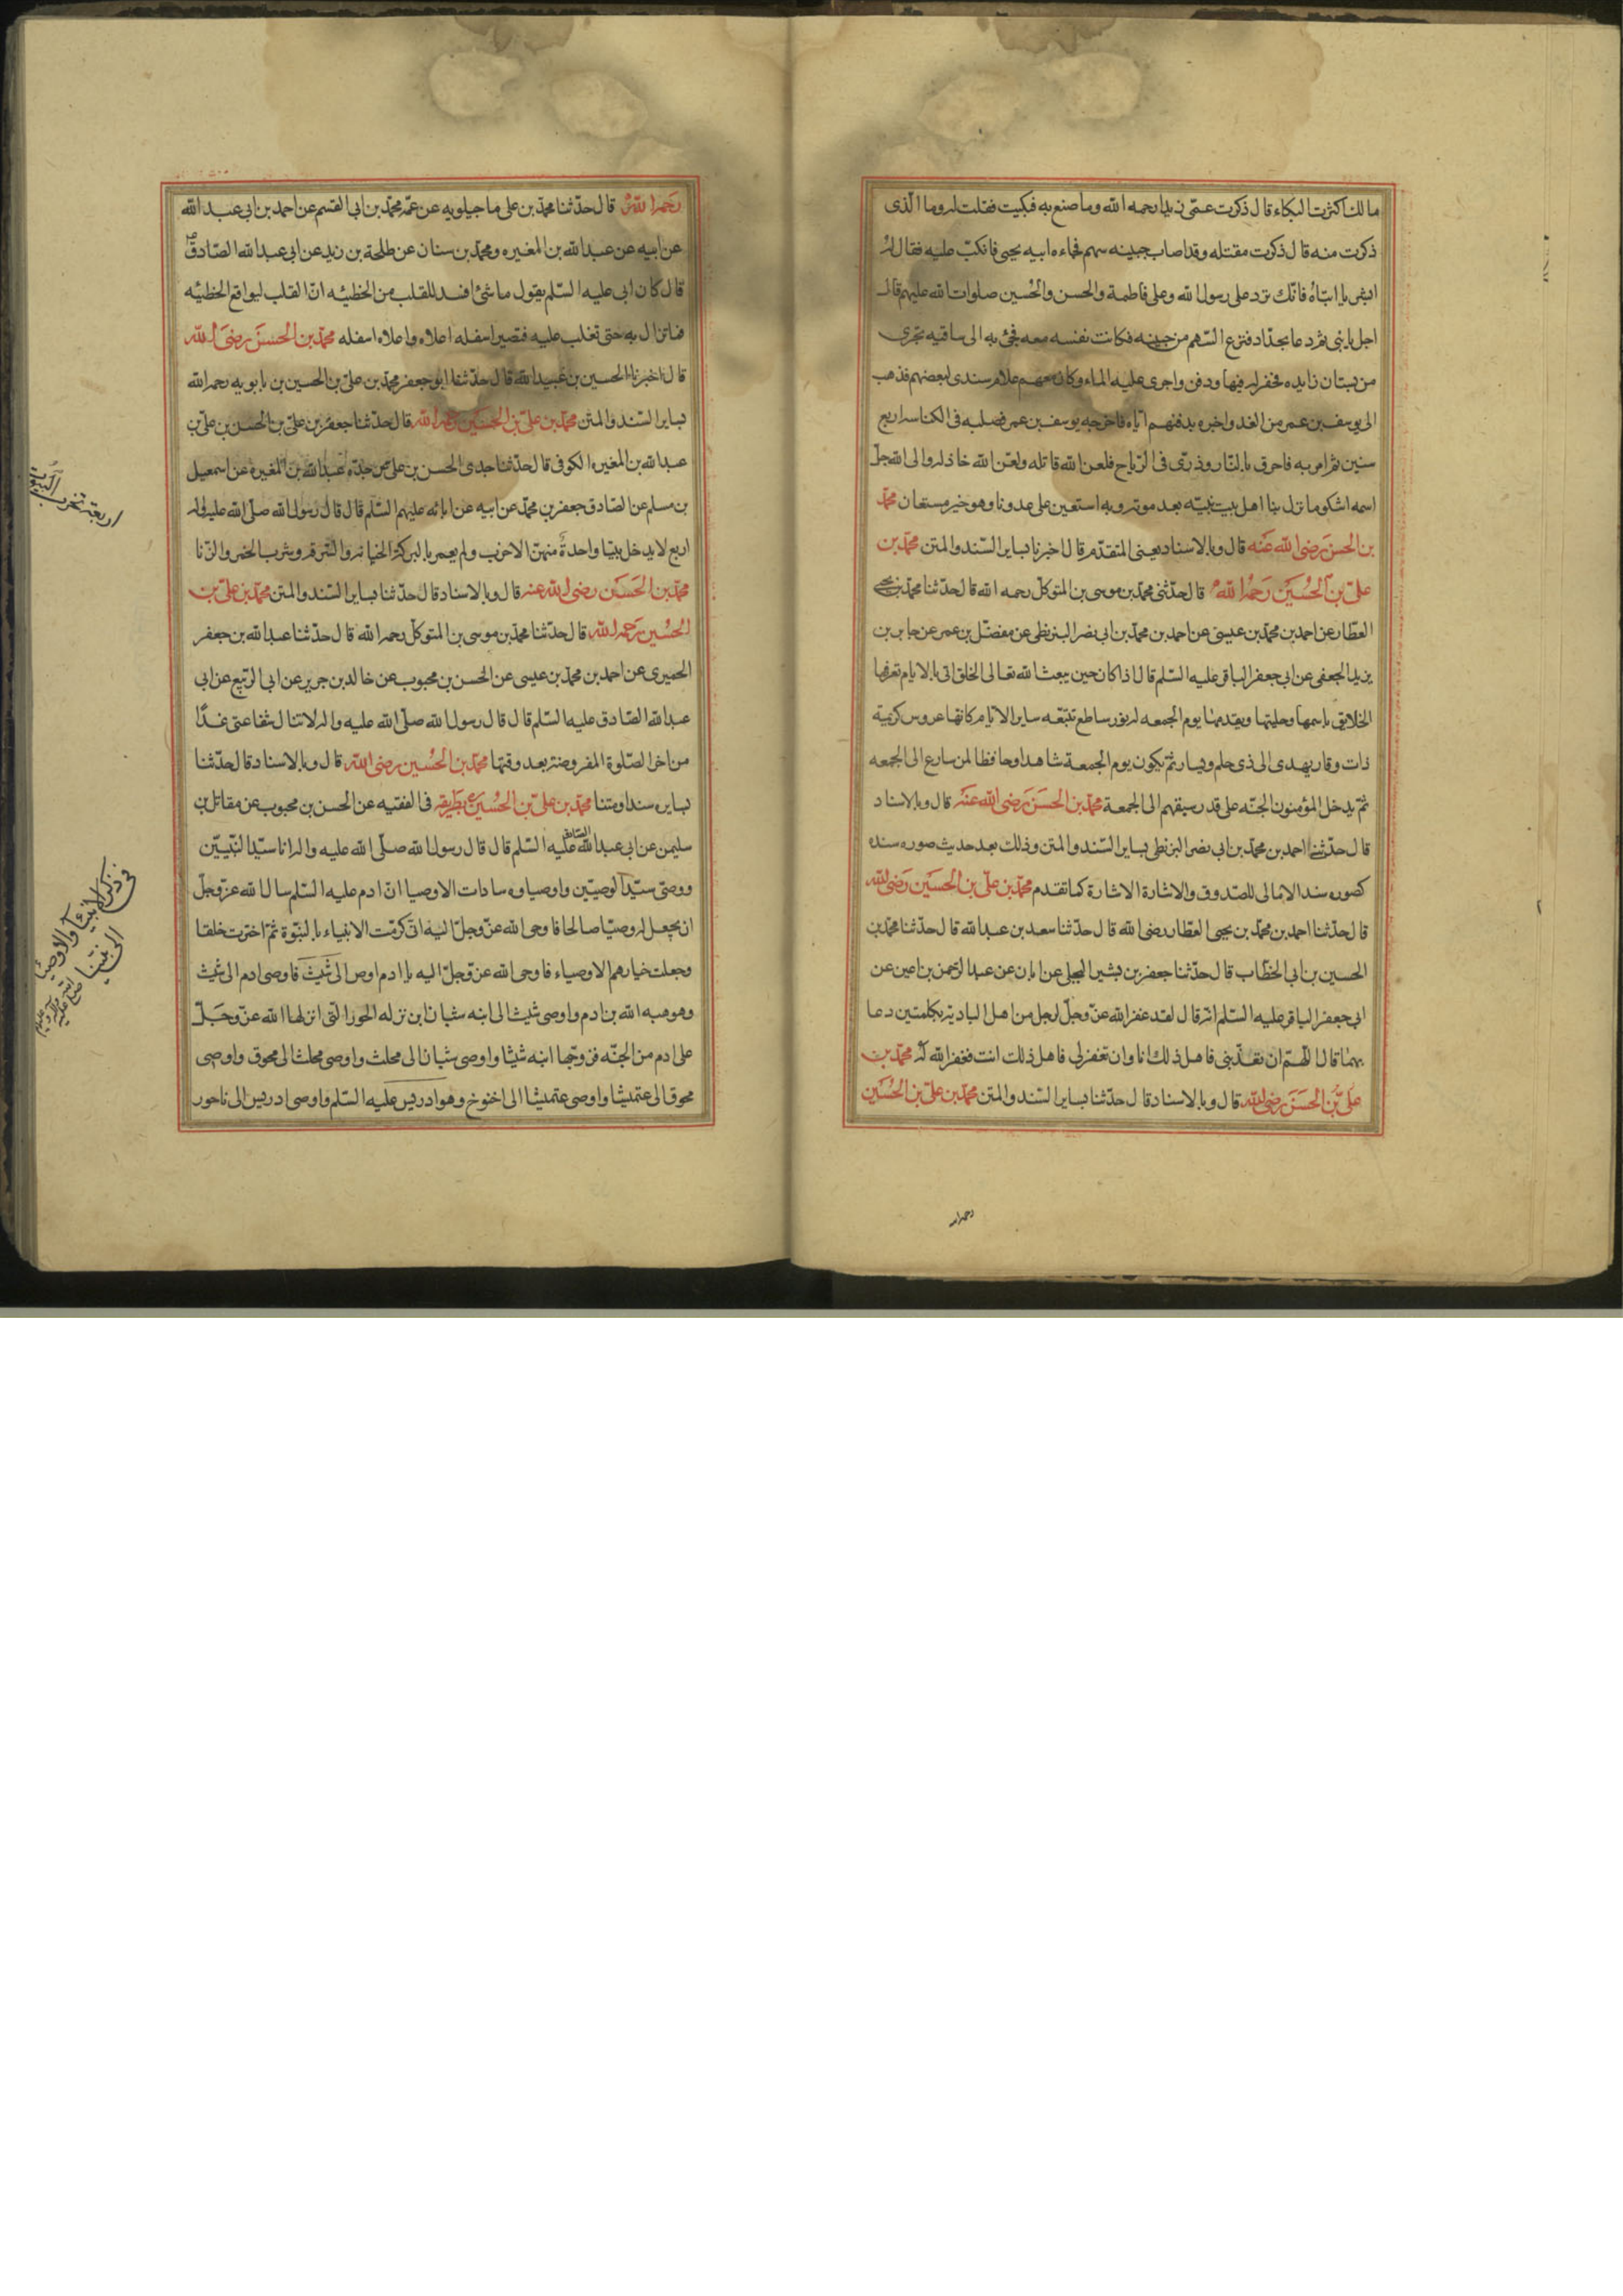 ما لك اكثرت البكاء قال ذكرت عمّى زيدا رحمه الله وما صنع به فبكيت فقلت له وما الّذى
ذكرت منه قال ذكرت مقتله وقد اصاب جبينه سهم فجاءه ابنه يحيى فانكبّ عليه فقال له
ابشر يا ابتاه فانّك ترد على رسول الله وعلى فاطمة والحسن والحسين صلوات الله عليهم قال
اجل يا بنى ثم دعا بحدّاد فنزع السّهم من جبينه فكانت نفسه معه فجئ به الى ساقيه تجرى
من بستان زايده فحفر له فيها ودفن واجرى عليه الماء وكان معهم غلام سندى لبعضهم فذهب
الى يوسف بن عمر من الغد واخبره بدفنهم ايّاه فاخرجه يوسف بن عمر فصلبه فى الكناسه اربع
سنين ثم امر به فاحرق بالنّار وذرّى فى الرّياح فلعن الله قاتله ولعن الله خاذله والى الله جلّ
اسمه اشكو ما نزل بنا اهل بيت نبيّه بعد موته وبه استعين على عدونا وهو خير مستعان محمّد
بن الحسن رضى الله عنه قال وبالاسناد يعنى المتقدّم قال اخبرنا بساير السّند والمتن محمّد بن
علىّ بن الحسين رحمه الله قال حدّثنى محمّد بن موسى بن المتوكّل رحمه الله قال حدّثنا محمّد بن يحيى
العطّار عن احمد بن محمّد بن عيسى عن احمد بن محمّد بن ابى نصر البزنطى عن مفضّل بن عمر عن جابر بن
يزيد الجعفى عن ابى جعفر الباقر عليه السّلم قال اذا كان حين يبعث الله تعالى الخلق اتى بالايام تعرفها
الخلايق باسمها وحليتها ويقدمها يوم الجمعه له نور ساطع تتبّعه ساير الايّام كانّها عروس كريمة
ذات وقار يهدى الى ذى حلم ويسار ثمّ يكون يوم الجمعة شاهدا وحافظا لمن سارع الى الجمعه
ثمّ يدخل المؤمنون الجنّه على قدر سبقهم الى الجمعة محمّد بن الحسن رضى الله عنه قال وبالاسناد
قال حدّثنى احمد بن محمّد بن ابى نصر البزنطى بساير السّند والمتن وذلك بعد حديث صوره سنده
كصوره سند الامالى للصدوق والاشارة الاشارة كما تقدم محمّد بن علىّ بن الحسين رضى الله
قال حدّثنا احمد بن محمّد بن يحيى العطّار رضى الله قال حدّثنا سعد بن عبد الله قال حدّثنا محمّد بن
الحسين بن ابى الخطّاب قال حدّثنا جعفر بن بشير البجلى عن ابان عن عبد الرّحمن بن اعين عن
ابى جعفر الباقر عليه السّلم انّه قال لقد غفر الله عزّ وجلّ لرجل من اهل البادية بكلمتين دعا
بهما قال اللّهمّ ان تعذّبنى فاهل ذلك انا وان تغفر لى فاهل ذلك انت فغفر الله له محمّد بن
علىّ بن الحسن رضى الله قال وبالاسناد قال حدّثنا بساير السّند والمتن محمّد بن علىّ بن الحسين
رحمه الله
رحمه الله قال حدّثنا محمّد بن على ماجيلويه عن عمّه محمّد بن ابى القسم عن احمد بن ابى عبد الله
عن ابيه عن عبد الله بن المغيره ومحمّد بن سنان عن طلحة بن زيد عن ابى عبد الله الصّادق
قال كان ابى عليه السّلم يقول ما شئ افسد للقلب من الخطيئه انّ القلب ليواقع الخطيئه
فما تزال به حتى تغلب عليه فتصير اسفله اعلاه واعلاه اسفله محمّد بن الحسن رضى الله
قال اخبرنا الحسين بن عبيد الله قال حدّثنا ابو جعفر محمّد بن علىّ بن الحسين بن بابويه رحمه الله
بساير السّند والمتن محمّد بن علىّ بن الحسين رحمه الله قال حدّثنا جعفر بن علىّ بن الحسن بن علىّ بن
عبد الله بن المغيره الكوفى قال حدّثنا جدى الحسن بن على عن جدّه عبد الله بن المغيرة عن اسمعيل
بن مسلم عن الصّادق جعفر بن محمّد عن ابيه عن ابائه عليهم السّلم قال قال رسول الله صلّى الله عليه واله
اربع لا يدخل بيتا واحدة منهنّ الا خرب ولم يعمر بالبركة الخيانه والسّرقه وشرب الخمر والزّنا
محمّد بن الحسن رضى الله عنه قال وبالاسناد قال حدّثنا بساير السّند والمتن محمّد بن علىّ بن
الحسين رحمه الله قال حدّثنا محمّد بن موسى بن المتوكّل رحمه الله قال حدّثنا عبد الله بن جعفر
الحميرى عن احمد بن محمّد بن عيسى عن الحسن بن محبوب عن خالد بن جرير عن ابى الرّبيع عن ابى
عبد الله الصّادق عليه السّلم قال قال رسول الله صلّى الله عليه واله لا تنال شفاعتى غدًا
من اخر الصّلوة المفروضه بعد وقتها محمّد بن الحسين رضى الله قال وبالاسناد قال حدّثنا
بسايره سندا ومتنا محمّد بن علىّ بن الحسين ره بطريقه فى الفقيه عن الحسن بن محبوب عن مقاتل بن
سليمن عن ابى عبد الله الصّادق عليه السّلم قال قال رسول الله صلّى الله عليه واله انا سيّد النّبيّين
ووصّى سيّد الوصيّين واوصياوه سادات الاوصيا انّ ادم عليه السّلم سال الله عزّ وجلّ
ان يجعل له وصيّا صالحا فاوحى الله عزّ وجلّ اليه انّى كرّمت الانبياء بالنبّوة ثمّ اخترت خلقا
وجعلت خيارهم الاوصياء فاوحى الله عزّ وجلّ اليه يا ادم اوص الى شيث فاوصى ادم الى شيث
وهو هبه الله بن ادم واوصى شيث الى ابنه شبان ابن نزله الحورا الّتى انزلها الله عزّ وجلّ
على ادم من الجنّه فزوّجها ابنه شيثا واوصى شبان الى محلث واوصى محلث الى محوق واوصى
محوق الى عتميثا واوصى عتميثا الى اخنوخ وهو ادريس عليه السّلم واوصى ادريس الى ناحور
اربعة تخرب البيوت
فى ذكر الانبيآ والاوصيآ
الى نبيّنا صلى الله عليه وآله